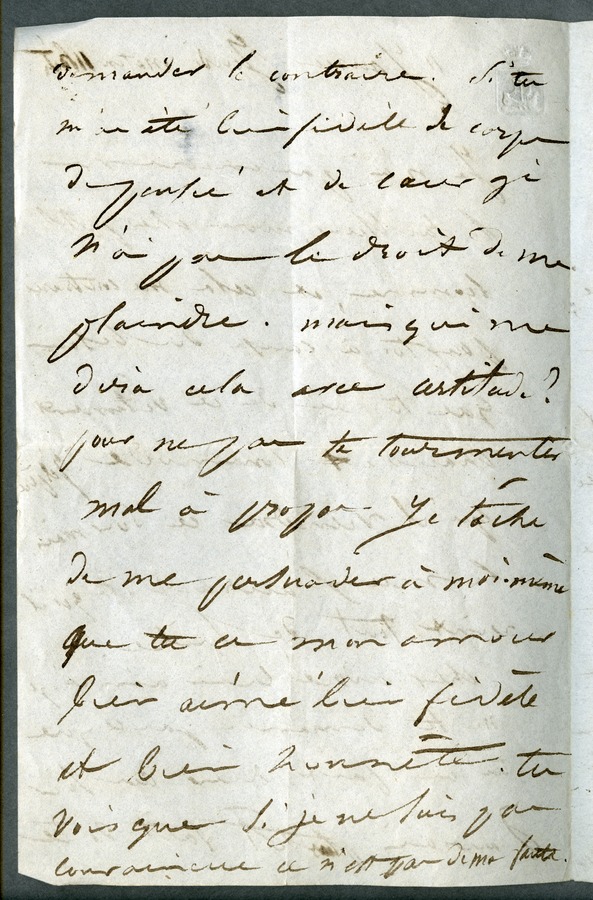 demander le contraire. Si tu
m'as été bien fidèle de corps
de pensée et de cœur je
n'ai pas le droit de me
plaindre. mais qui me
dira cela avec certitude?
pour ne pas te tourmenter
mal à propos Je tâche
de me persuader à moi-même
que tu es mon amour
bien aimé bien fidèle
et bien honnête. tu
vois que si je ne suis pas
convaincue ce n'est pas de ma faute.